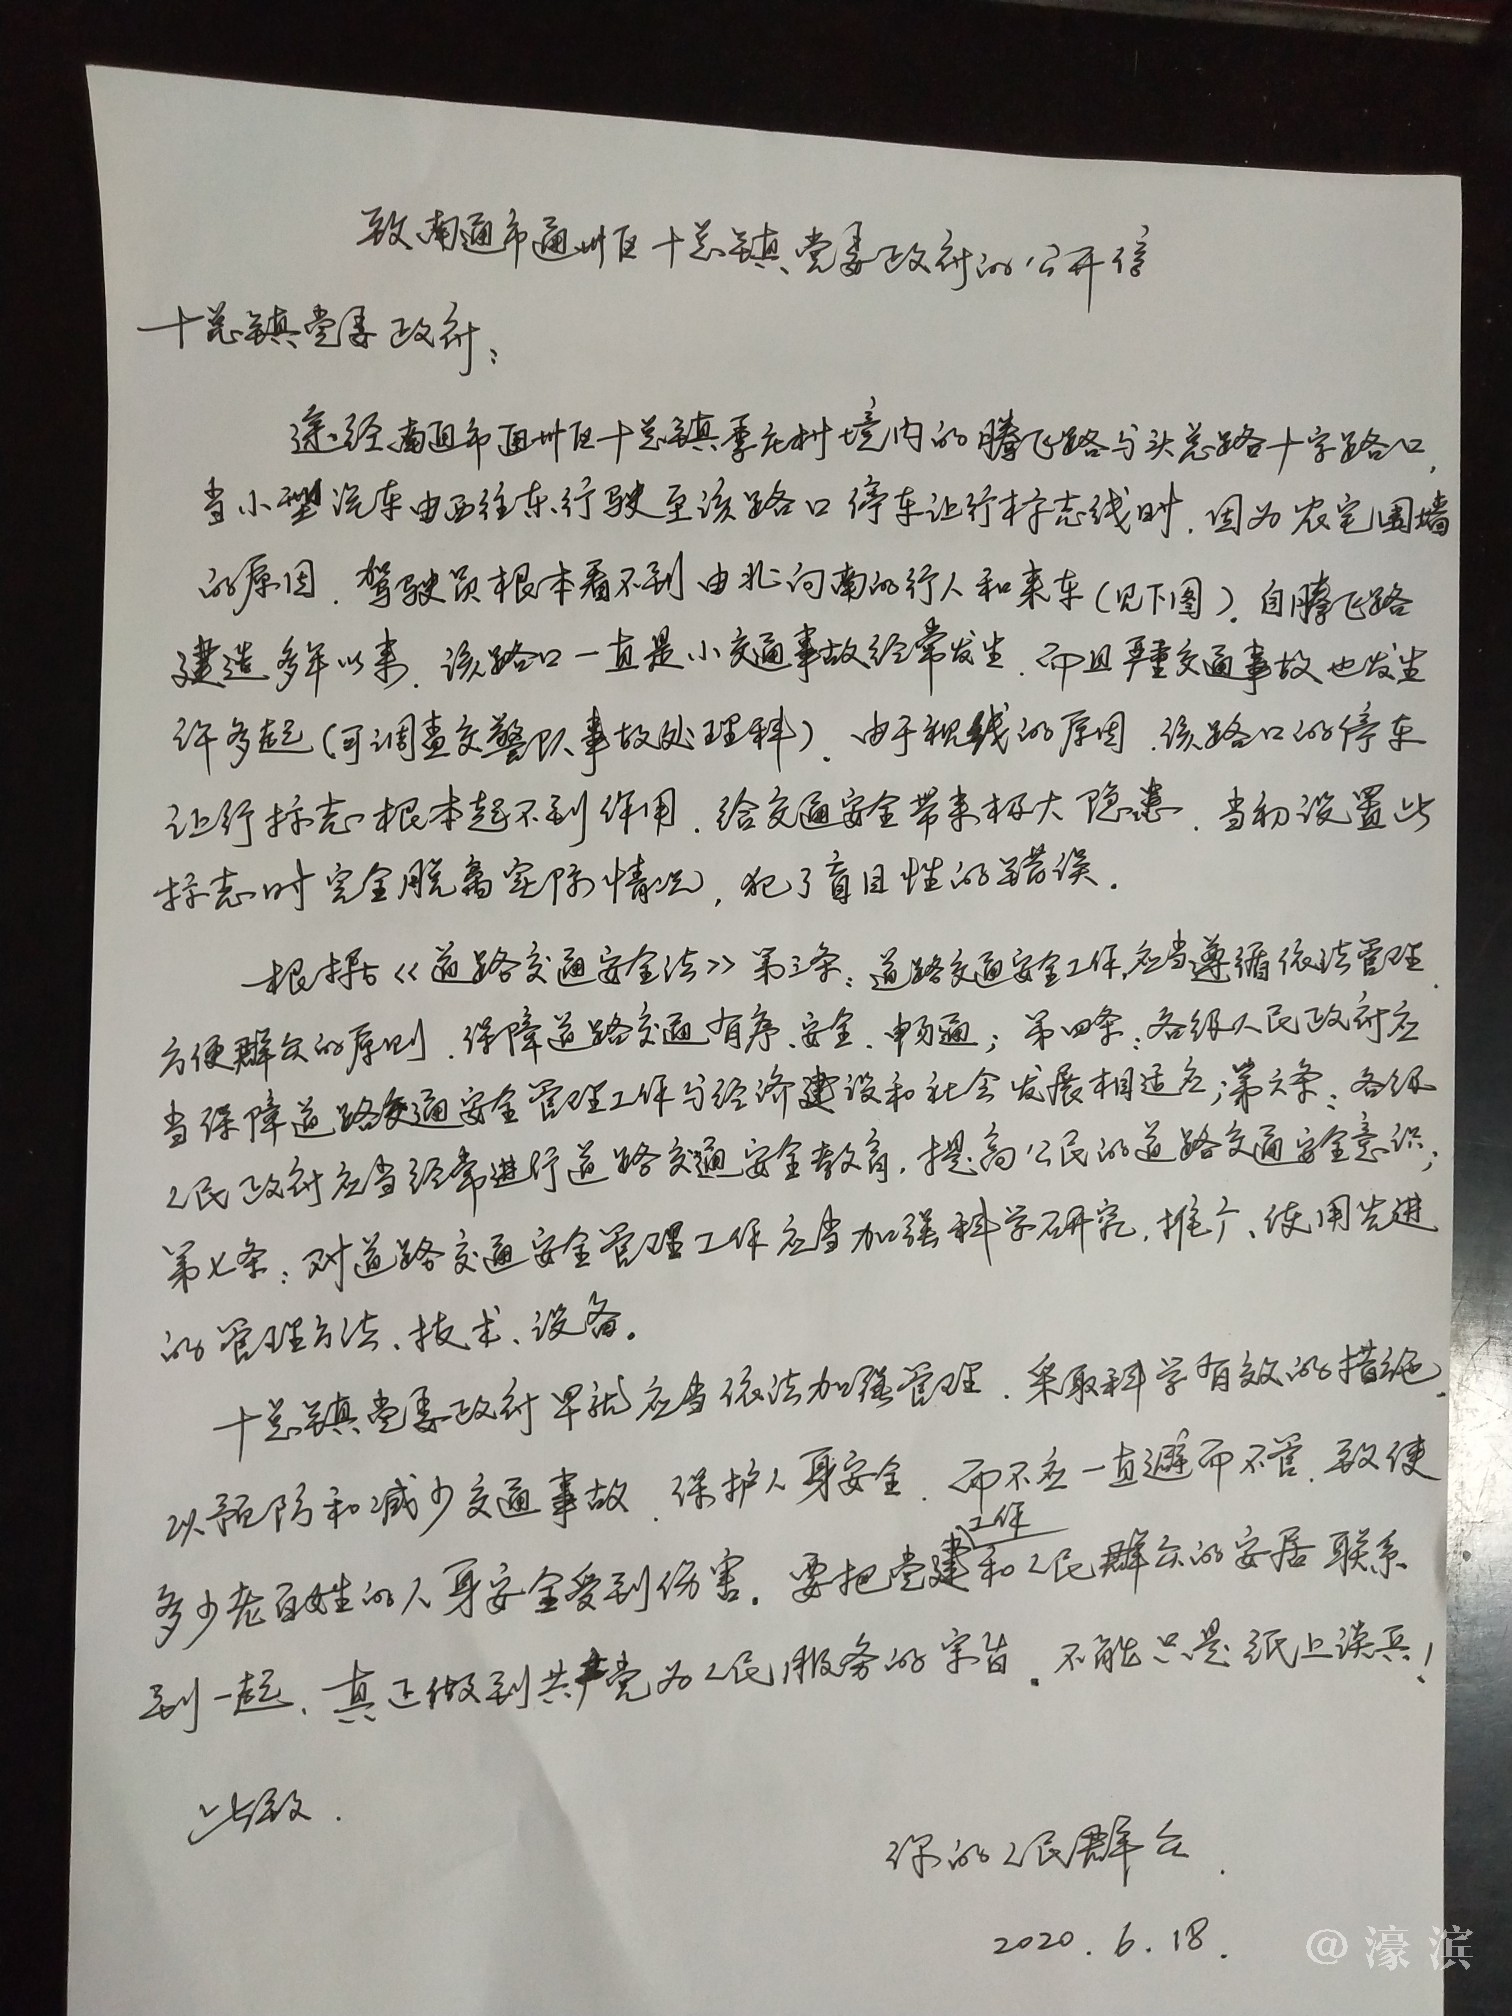 致南通市通州区十总镇党委政府的公开信
十总镇党委政府：
途经南通市通州区十总镇季庄村境内的腾飞路与头总路十字路口，
当小型汽车由西往东行驶至该路口停车让行标志线时，因为农宅围墙
的原因，驾驶员根本看不到由北向南的行人和来车（见下图）。自腾飞路
建造多年以来，该路口一直是小交通事故经常发生，而且严重交通事故也发生
许多起（可调查交警队事故处理科）。由于视线的原因，该路口的停车
让行标志根本起不到作用，给交通安全带来极大隐患，当初设置此
标志时完全脱离实际情况，犯了盲目性的错误。
根据《道路交通安全法》第三条：道路交通安全工作，应当遵循依法管理、
方便群众的原则，保障道路交通有序、安全、畅通；第四条：各级人民政府应
当保障道路交通安全管理工作与经济建设和社会发展相适应；第六条：各级
人民政府应当经常进行道路交通安全教育，提高公民的道路交通安全意识；
第七条：对道路交通安全管理工作应当加强科学研究，推广、使用先进
的管理方法、技术、设备。
十总镇党委政府早就应当依法加强管理，采取科学有效的措施，
以预防和减少交通事故，保护人身安全，而不应一直避而不管，致使
多少老百姓的人身安全受到伤害。要把党建工作和人民群众的安居联系
到一起，真正做到共产党为人民服务的宗旨，不能只是纸上谈兵！
此致.
你的人民群众.
2020.6.18.
@濠滨